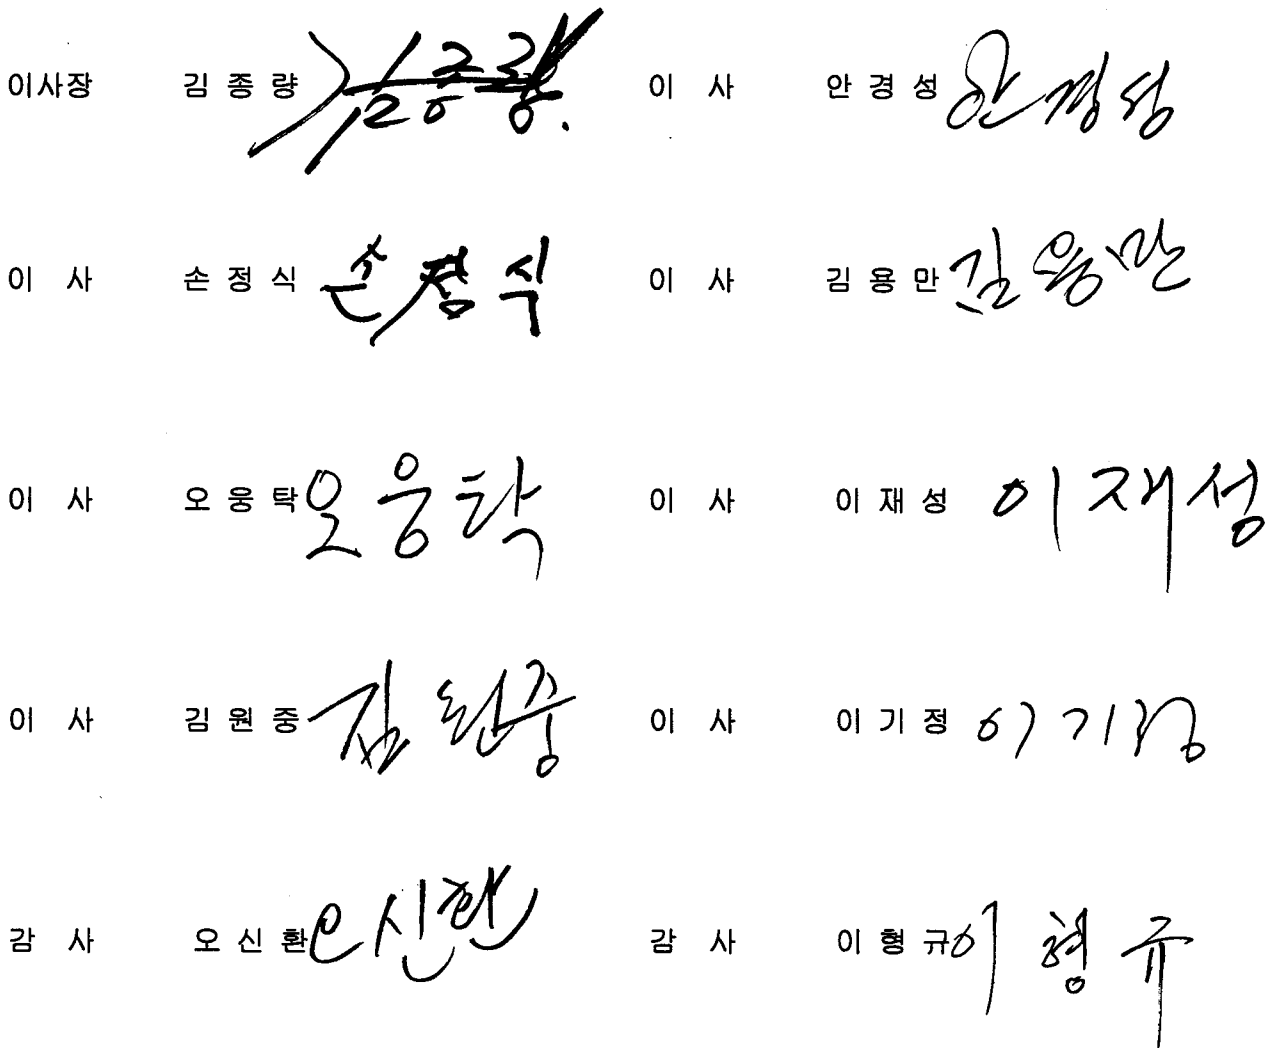 이사장 김종량 김종량 이 사 안경성 안경성
이 사 손정식 손정식 이 사 김용만 김용만
이 사 오웅탁 오웅탁 이 사 이재성 이재성
이 사 김원중 김원중 이 사 이기정 이기정
감 사 오신환 오신환 감 사 이형규 이형규